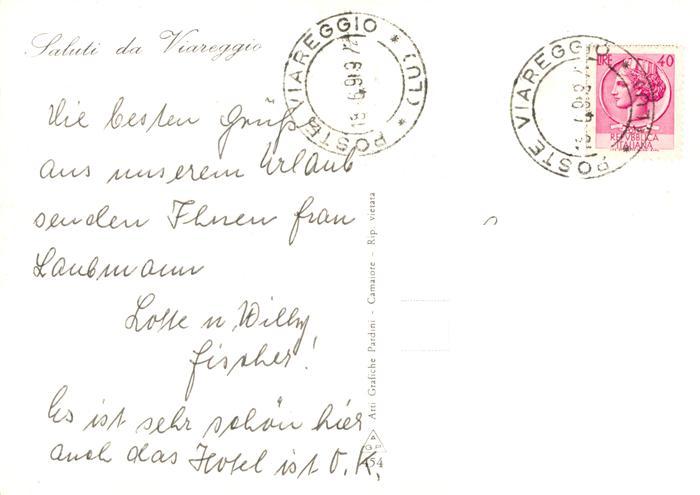 Saluti da Viareggio
POSTE VIAREGGIO * (LU) *
POSTE VIAREGGIO * (LU) *
LIRE 40
REPVBBLICA
ITALIANA
Die besten Grüße
aus unserem Urlaub
senden Ihnen frau
Laubmann
Lotte u Willy
fischer!
Es ist sehr schön hier
auch das Hotel ist O.K,
Arti Grafiche Pardini - Camaiore - Rip. vietata
454